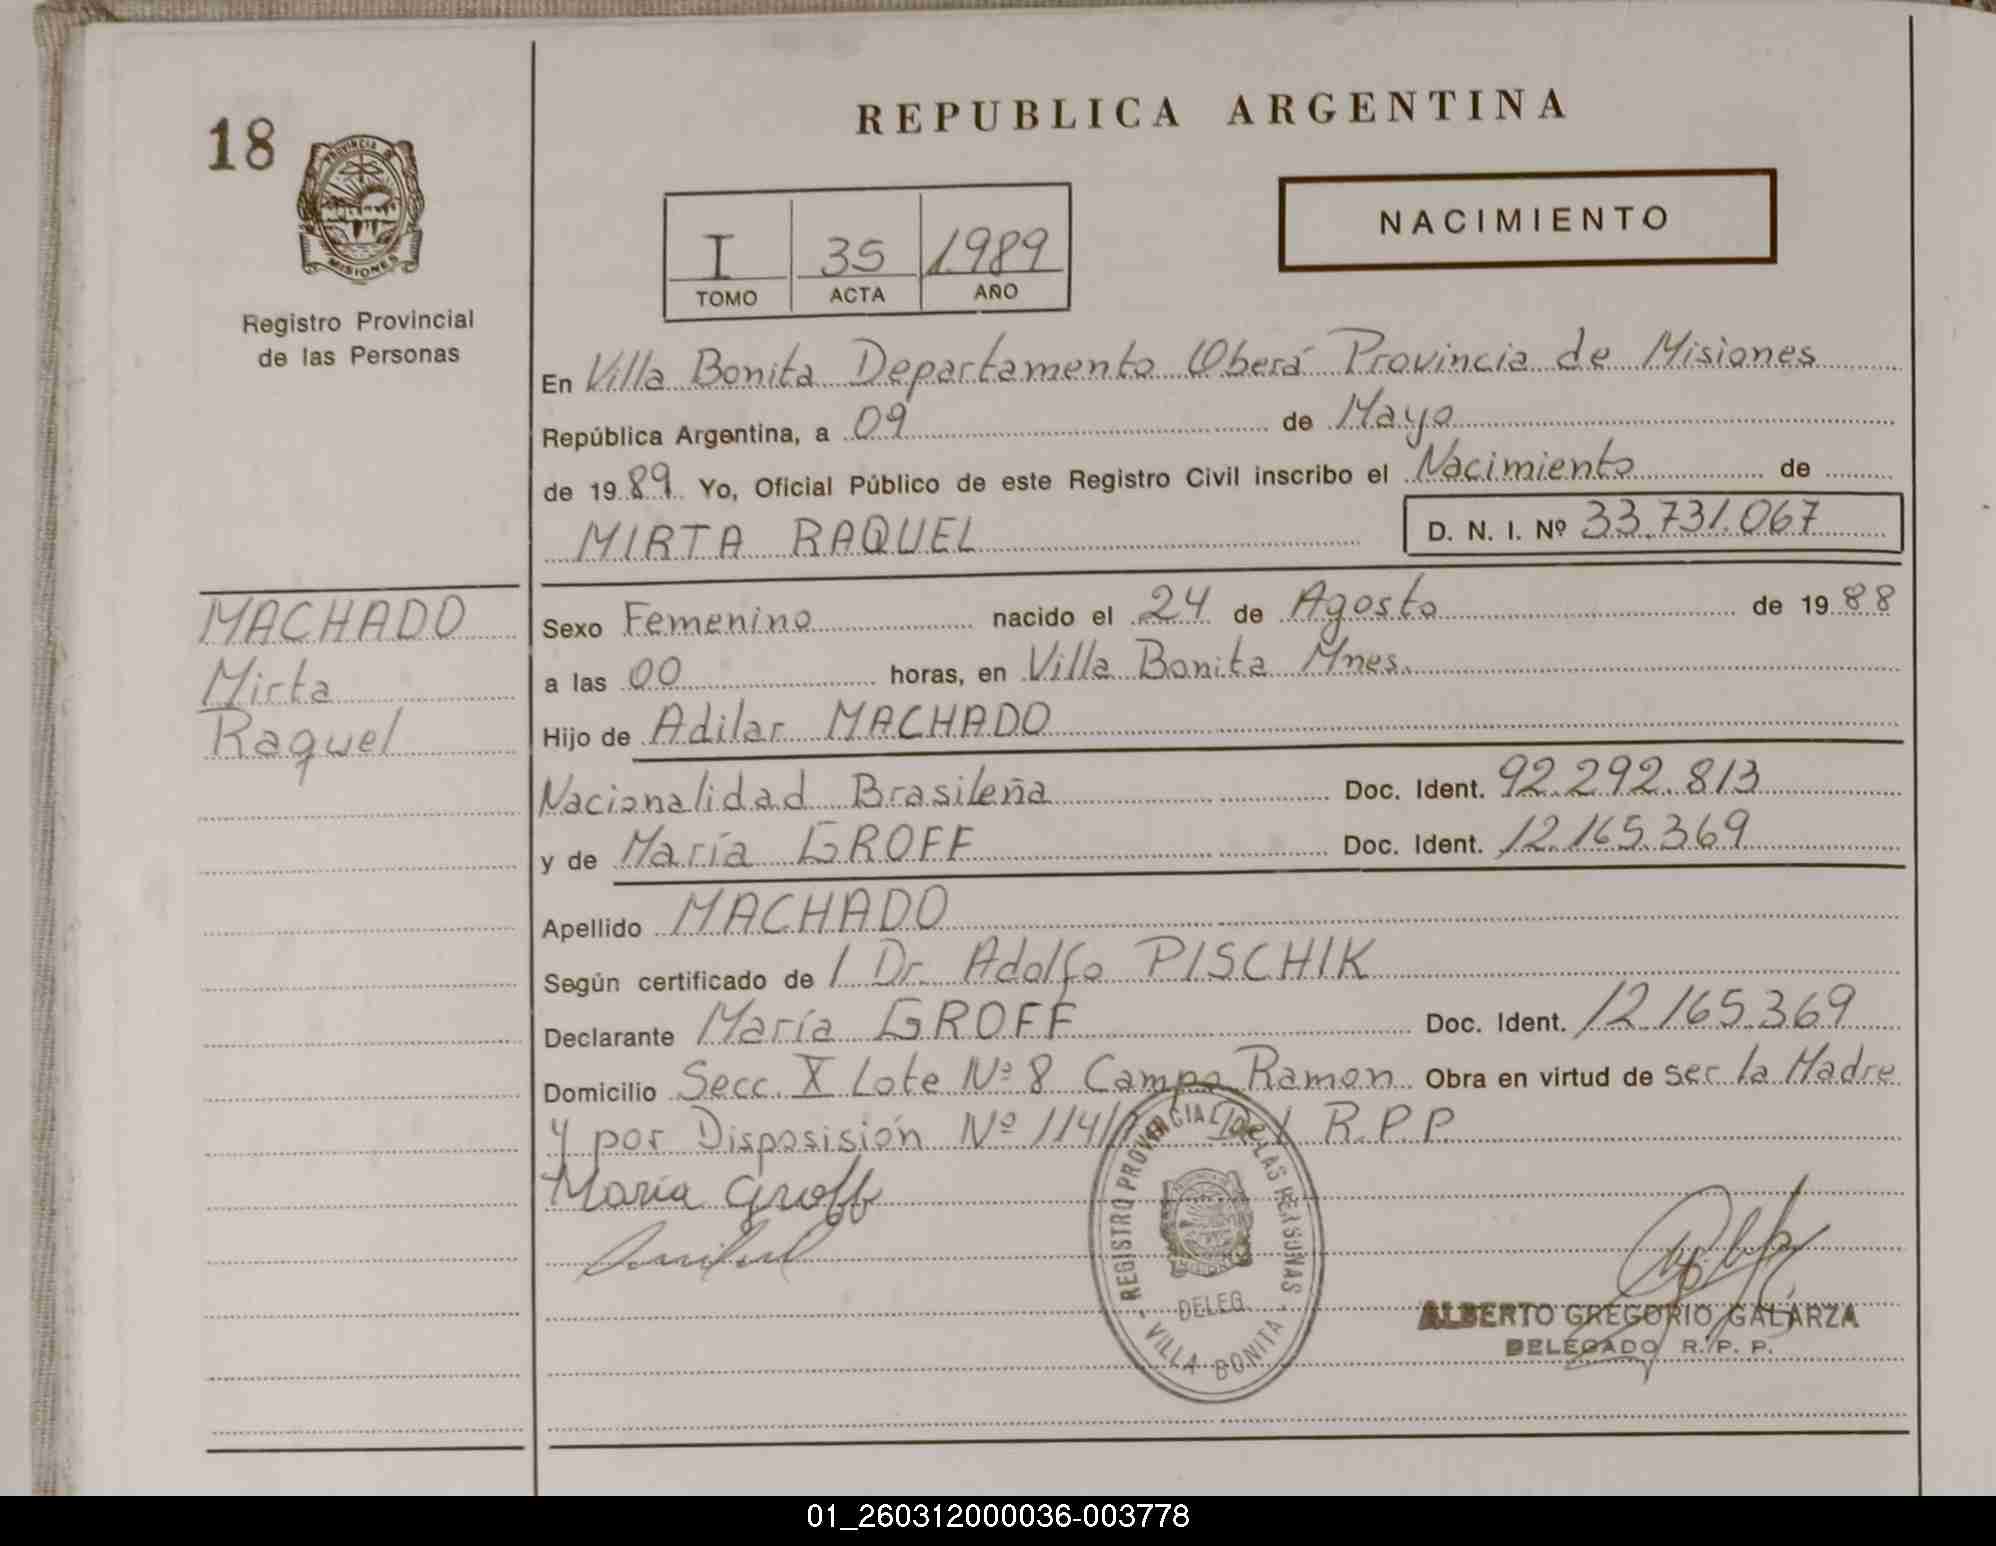 18
PROVINCIA DE
MISIONES
Registro Provincial
de las Personas
REPUBLICA ARGENTINA
I 35 1989
TOMO ACTA AÑO
NACIMIENTO
En Villa Bonita Departamento Oberá Provincia de Misiones
República Argentina, a 09 de Mayo
de 1989 Yo, Oficial Público de este Registro Civil inscribo el Nacimiento de
MIRTA RAQUEL D. N. I. Nº 33.731.067
MACHADO
Mirta
Raquel
Sexo Femenino nacido el 24 de Agosto de 1988
a las 00 horas, en Villa Bonita Mnes.
Hijo de Adilar MACHADO
Nacionalidad Brasileña Doc. Ident. 92.292.813
y de María GROFF Doc. Ident. 12.165.369
Apellido MACHADO
Según certificado de / Dr. Adolfo PISCHIK
Declarante María GROFF Doc. Ident. 12.165.369
Domicilio Secc. X Lote Nº 8 Campo Ramon Obra en virtud de ser la Madre
y por Disposisión Nº 114/ Del R.P.P
María Groff
REGISTRO PROVINCIAL DE LAS PERSONAS
DELEG.
VILLA BONITA
ALBERTO GREGORIO GALARZA
DELEGADO R. P. P.
01_260312000036-003778